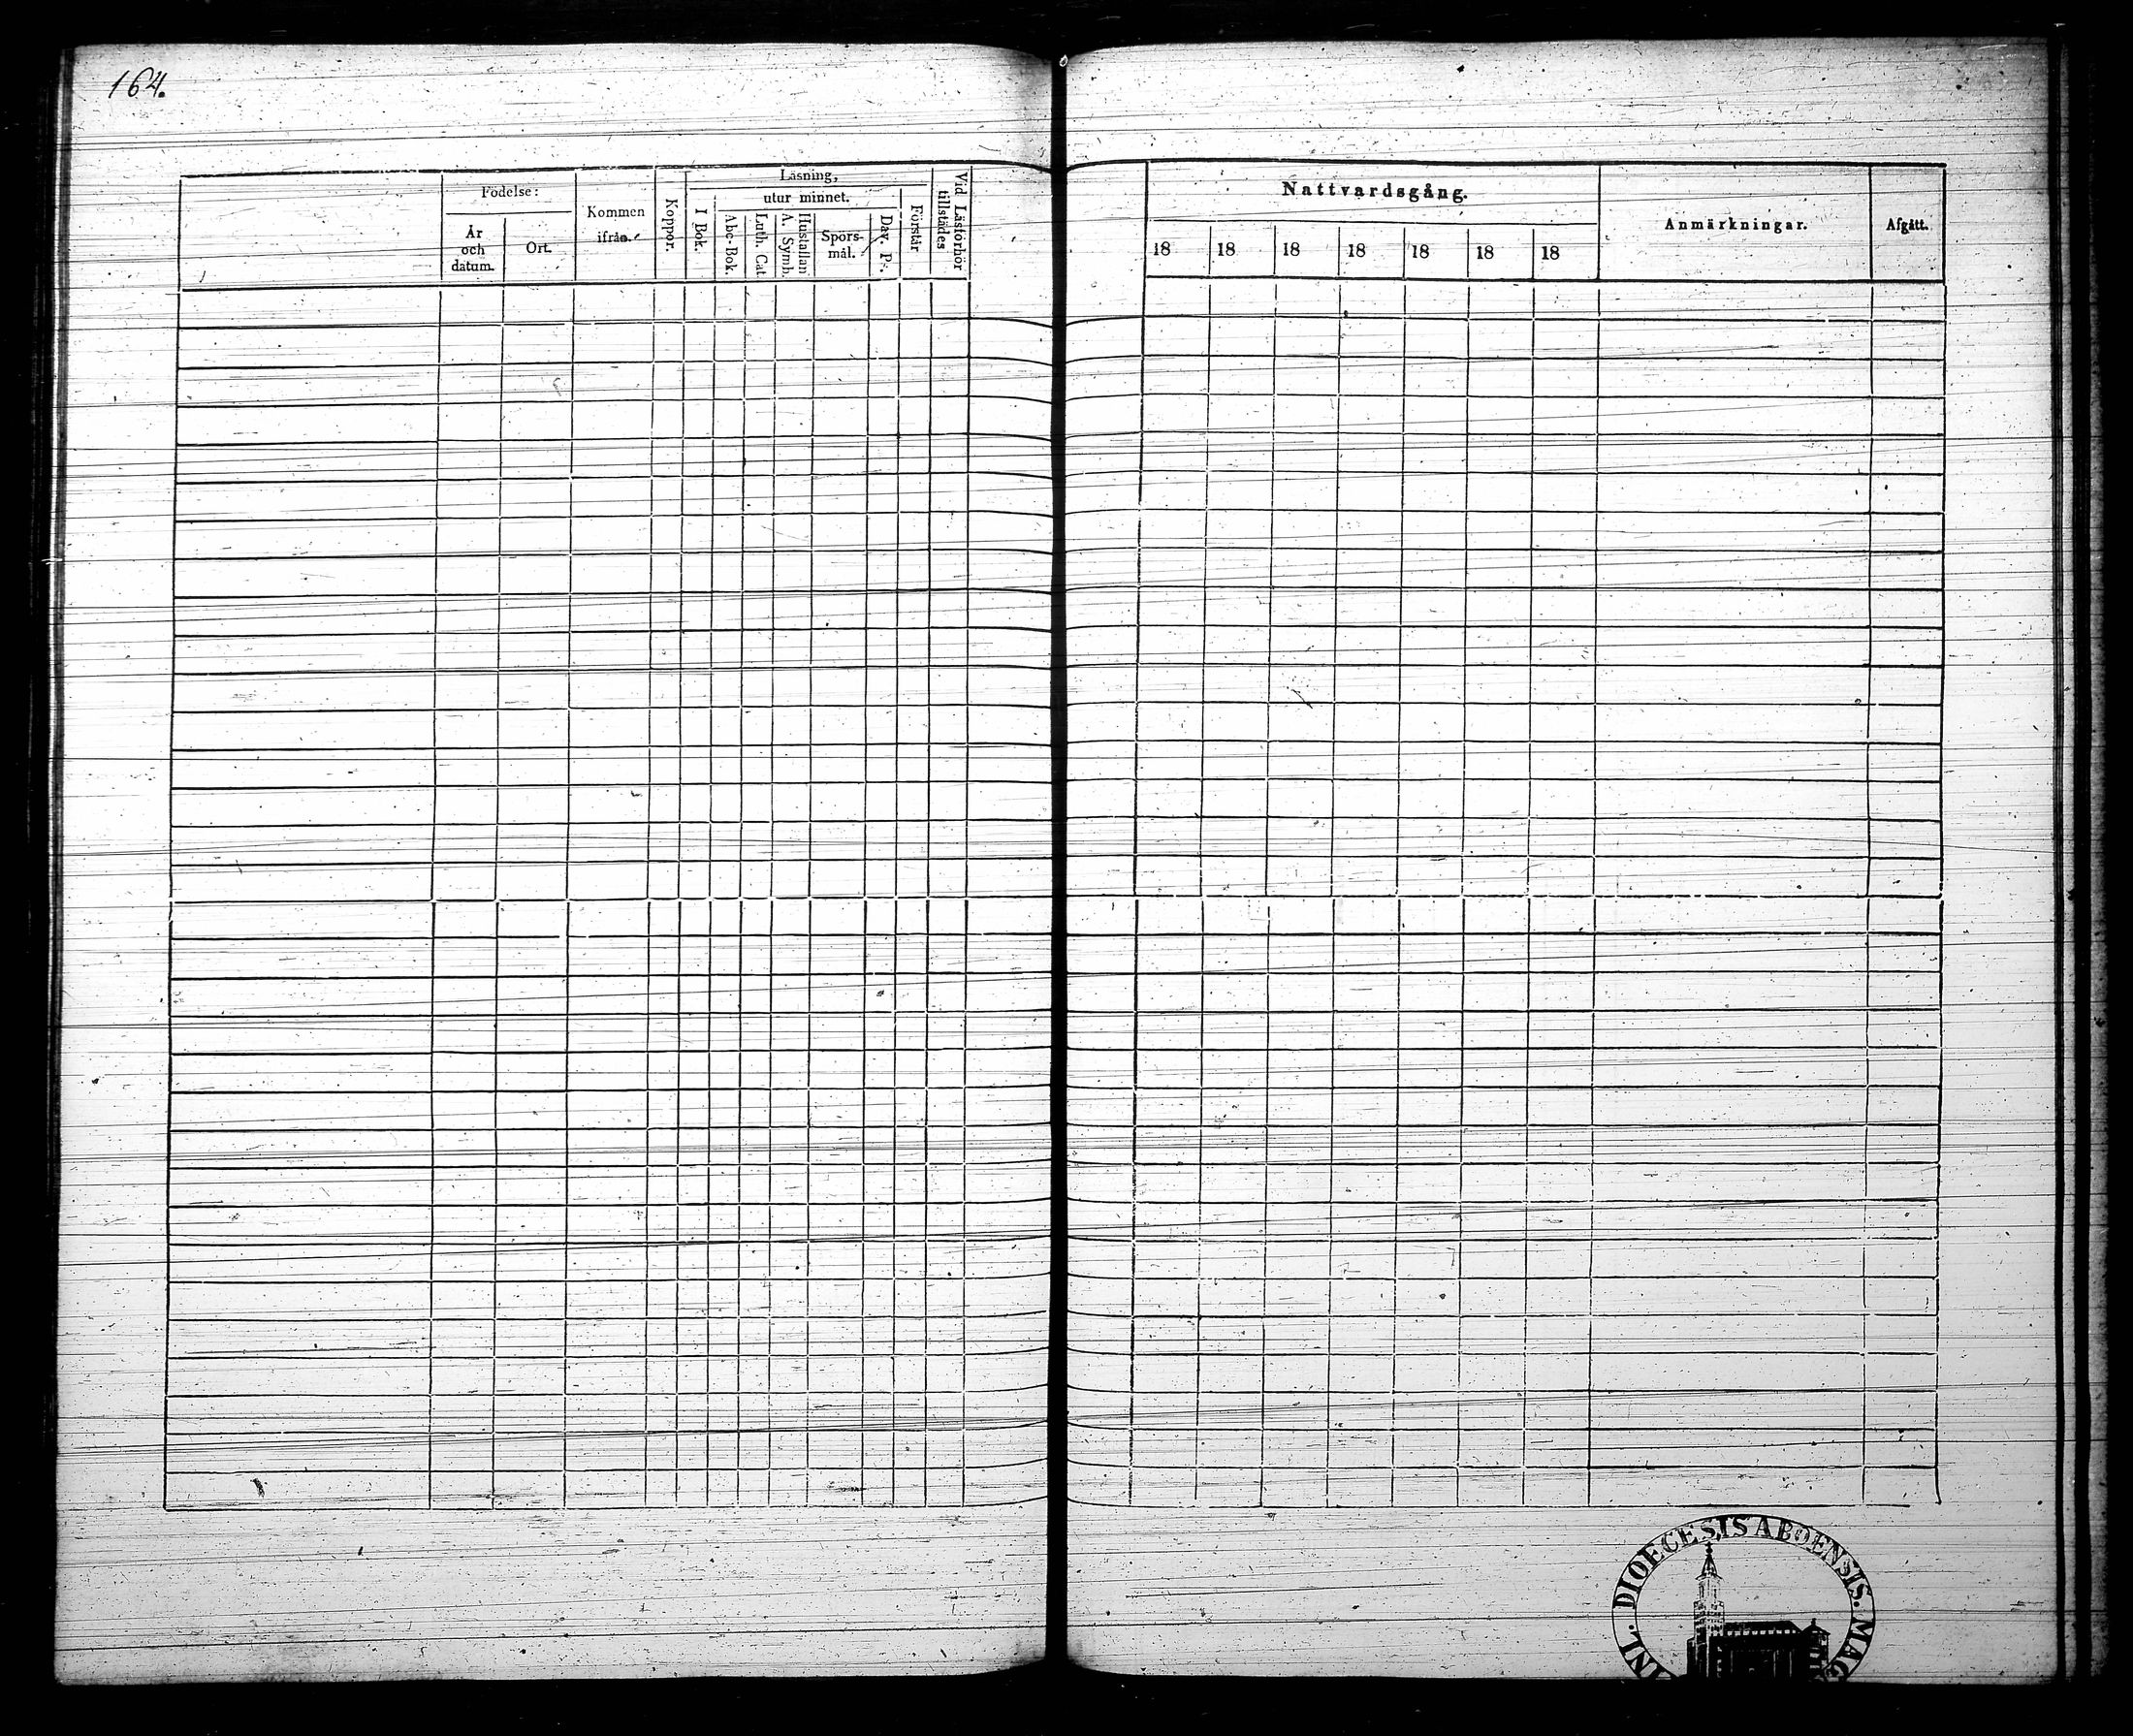 164.
Födelse:
År
och
datum.
Ort.
Kommen
ifrån.
Koppor.
Läsning,
I Bok.
utur minnet.
Abc-Bok.
Luth. Cat.
Hustaflan
A. Symb.
Spörs-
mål.
Dav. Ps.
Förstår
Vid Läsförhör
tillstädes
Nattvardsgång.
18 18 18 18 18 18 18
Anmärkningar.
Afgått.
DIOECESIS ABOENSIS. MAG